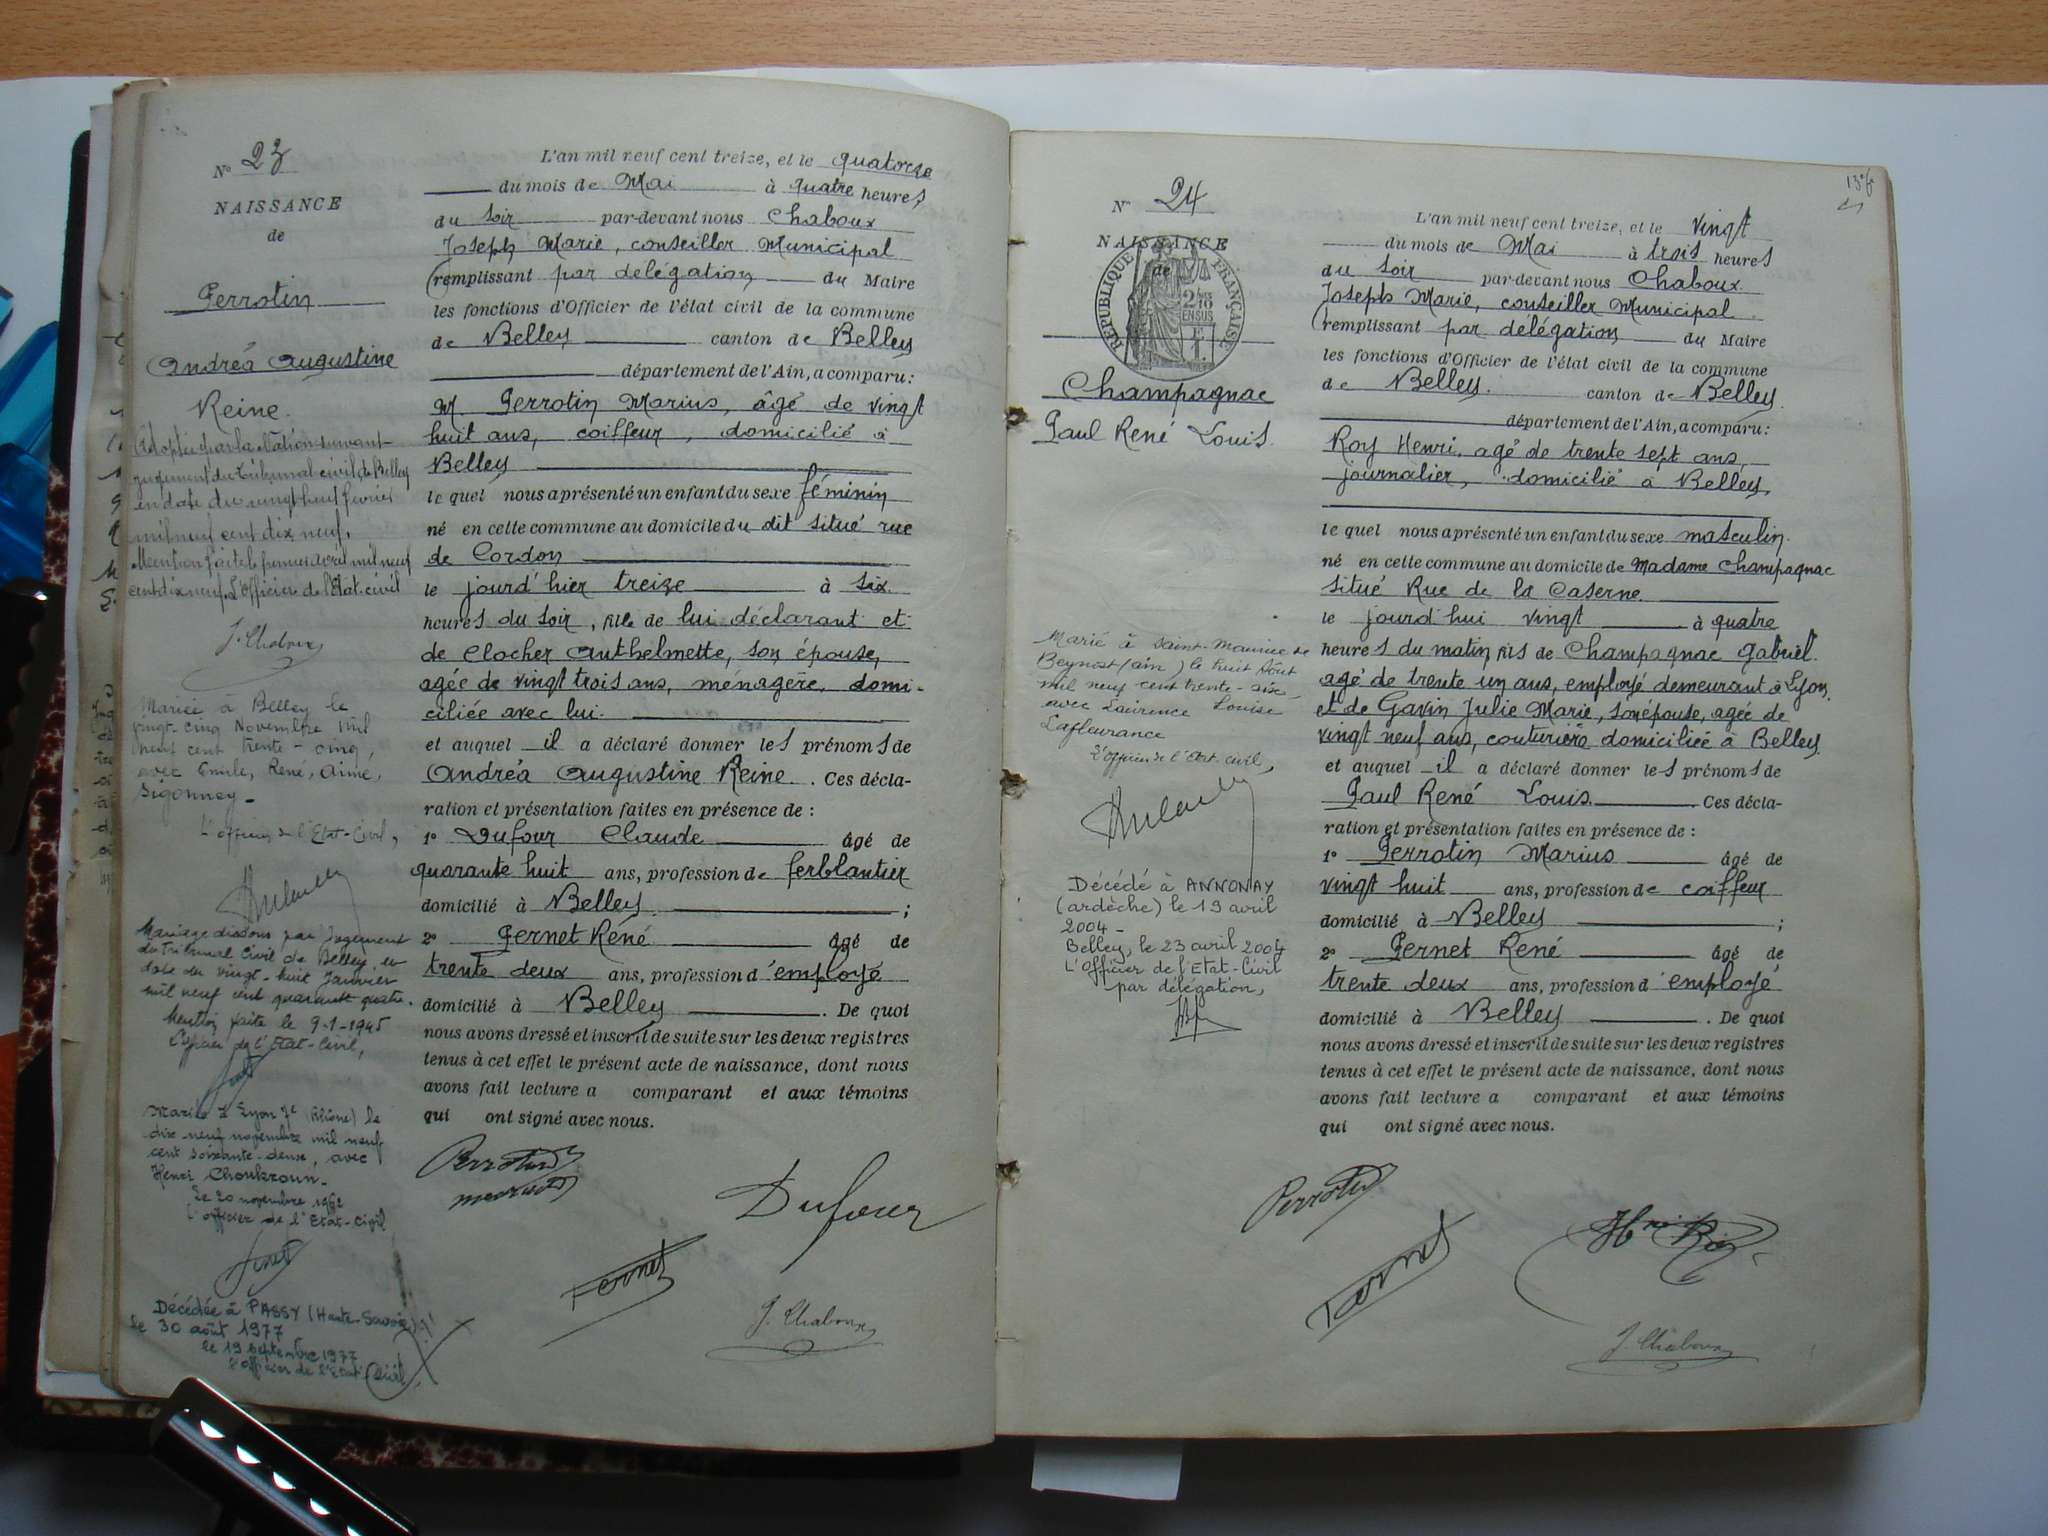 N° 23
NAISSANCE
de
Perrotin
Andréa Augustine
Reine.
Adoptée par la Nation suivant
jugement du Tribunal civil de Belley
en date du vingt neuf février
mil neuf cent dix neuf.
Mention faite le premier avril mil neuf
cent dix neuf. L'Officier de l'Etat-civil
J. Chaboux
Mariée à Belley le
vingt-cinq Novembre mil
neuf cent trente-cinq,
avec Emile, René, Aimé,
Sigonney-
L'officier de l'Etat-Civil,
Mariage dissous par Jugement
du Tribunal Civil de Belley en
date du vingt-huit Janvier
mil neuf cent quarante quatre.
Mention faite le 9-1-1945
L'officier de l'Etat-Civil,
Mariée à Lyon 7e (Rhône) le
dix-neuf novembre mil neuf
cent soixante-deux, avec
Henri Choukroun-
Le 20 novembre 1962
L'officier de l'Etat-Civil
Décédée à PASSY (Haute-Savoie)
le 30 août 1977
le 19 septembre 1977
l'officier de l'Etat Civil,
L'an mil neuf cent treize, et le quatorze
du mois de Mai à quatre heures
du soir par-devant nous Chaboux
Joseph Marie, conseiller Municipal
remplissant par délégation du Maire
les fonctions d'Officier de l'état civil de la commune
de Belley canton de Belley
département de l'Ain, a comparu:
M. Perrotin Marius, âgé de vingt
huit ans, coiffeur, domicilié à
Belley
le quel nous a présenté un enfant du sexe féminin
né en cette commune au domicile du dit situé rue
de Cordon
le jourd'hier treize à six
heures du soir, fille de lui déclarant et
de Clocher Anthelmette, son épouse,
agée de vingt trois ans, ménagère, domi-
ciliée avec lui.
et auquel il a déclaré donner les prénoms de
Andréa Augustine Reine. Ces décla-
ration et présentation faites en présence de :
1° Dufour Claude âgé de
quarante huit ans, profession de ferblantier
domicilié à Belley ;
2° Pernet René âgé de
trente deux ans, profession d'employé
domicilié à Belley . De quoi
nous avons dressé et inscrit de suite sur les deux registres
tenus à cet effet le présent acte de naissance, dont nous
avons fait lecture a comparant et aux témoins
qui ont signé avec nous.
Perrotin
Marius
Dufour
Pernet
J. Chaboux
N° 24
NAISSANCE
de
RÉPUBLIQUE FRANÇAISE
2/10
EN SUS
Champagnac
Paul René Louis.
Marié à Saint-Maurice de
Beynost (ain) le huit Août
mil neuf cent trente-six
avec Laurence Louise
Lafleurance
L'officier de l'Etat-civil,
Décédé à ANNONAY
(ardèche) le 19 avril
2004-
Belley, le 23 avril 2004
L'Officier de l'Etat-Civil
par délégation,
L'an mil neuf cent treize, et le vingt
du mois de Mai à trois heures
du soir par-devant nous Chaboux
Joseph Marie, conseiller Municipal
remplissant par délégation du Maire
les fonctions d'Officier de l'état civil de la commune
de Belley. canton de Belley
département de l'Ain, a comparu:
Roy Henri, agé de trente sept ans,
journalier, domicilié à Belley,
le quel nous a présenté un enfant du sexe masculin.
né en cette commune au domicile de Madame Champagnac
situé Rue de la Caserne
le jourd'hui vingt à quatre
heures du matin, fils de Champagnac Gabriel
agé de trente un ans, employé demeurant à Lyon
et de Gavin Julie Marie, son épouse, agée de
vingt neuf ans, couturière domiciliée à Belley
et auquel il a déclaré donner les prénoms de
Paul René Louis. Ces décla-
ration et présentation faites en présence de :
1° Perrotin Marius âgé de
vingt huit ans, profession de coiffeur
domicilié à Belley ;
2° Pernet René âgé de
trente deux ans, profession d'employé
domicilié à Belley . De quoi
nous avons dressé et inscrit de suite sur les deux registres
tenus à cet effet le présent acte de naissance, dont nous
avons fait lecture a comparant et aux témoins
qui ont signé avec nous.
Perrotin
Pernet
Hri Roy
J. Chaboux